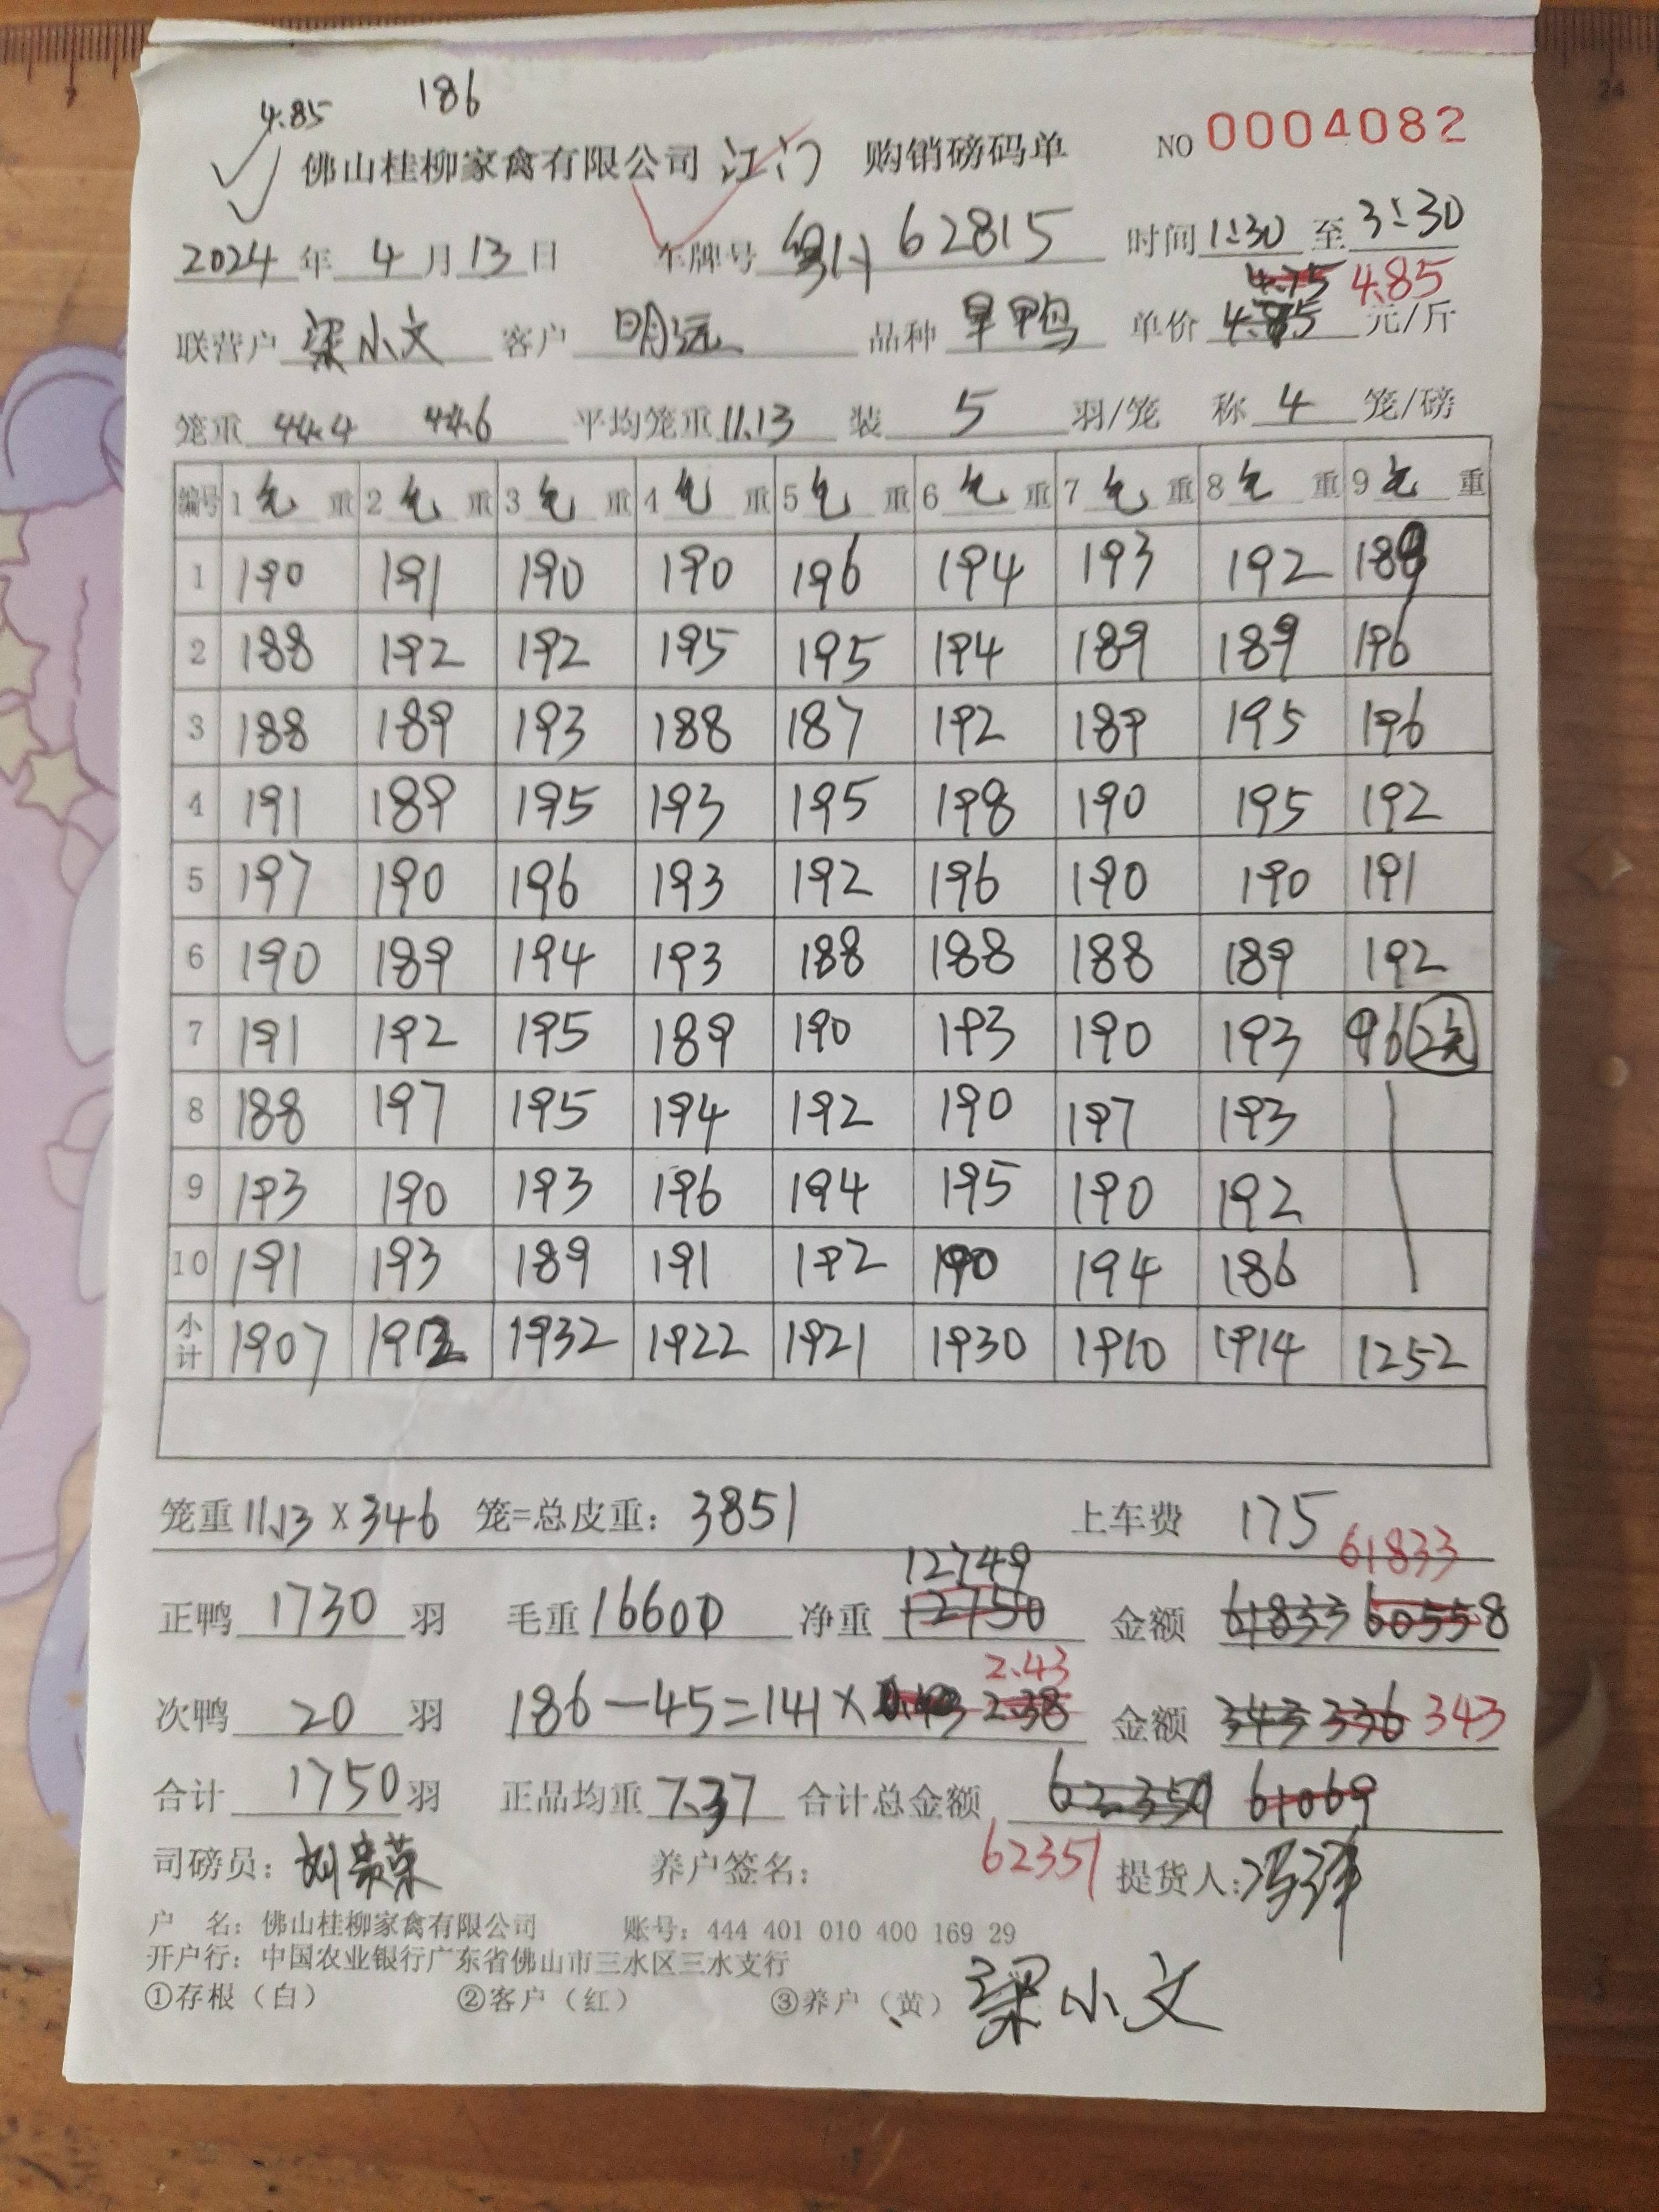 4.85 186
佛山桂柳家禽有限公司 江门 购销磅码单 NO 0004082
2024年4月13日 车牌号 62815 时间 1:30 至 3:30
4.75 4.85
联营户 梁小文 客户 明远 品种 旱鸭 单价 元/斤
笼重 44.4 44.6 平均笼重 11.13 装 5 羽/笼 称 4 笼/磅
编号 1 毛 重 2 毛 重 3 毛 重 4 毛 重 5 毛 重 6 毛 重 7 毛 重 8 毛 重 9 毛 重
1 190 191 190 190 196 194 193 192 189
2 188 192 192 195 195 194 189 189 196
3 188 189 193 188 187 192 189 195 196
4 191 189 195 193 195 198 190 195 192
5 197 190 196 193 192 196 190 190 191
6 190 189 194 193 188 188 188 189 192
7 191 192 195 189 190 193 190 193 96
8 188 197 195 194 192 190 197 193
9 193 190 193 196 194 195 190 192
10 191 193 189 191 192 190 194 186
小计 1907 1912 1932 1922 1921 1930 1910 1914 1252
笼重 11.13 X 346 笼=总皮重: 3851 上车费 175
12749 61833
正鸭 1730 羽 毛重 16600 净重 12750 金额 61833 60558
2.43
次鸭 20 羽 186-45=141× 2.38 金额 343 336 343
合计 1750 羽 正品均重 7.37 合计总金额 62351 61069
司磅员: 养户签名: 62351 提货人:
户 名: 佛山桂柳家禽有限公司 账号: 444 401 010 400 169 29
开户行: 中国农业银行广东省佛山市三水区三水支行
①存根（白） ②客户（红） ③养户（黄） 梁小文